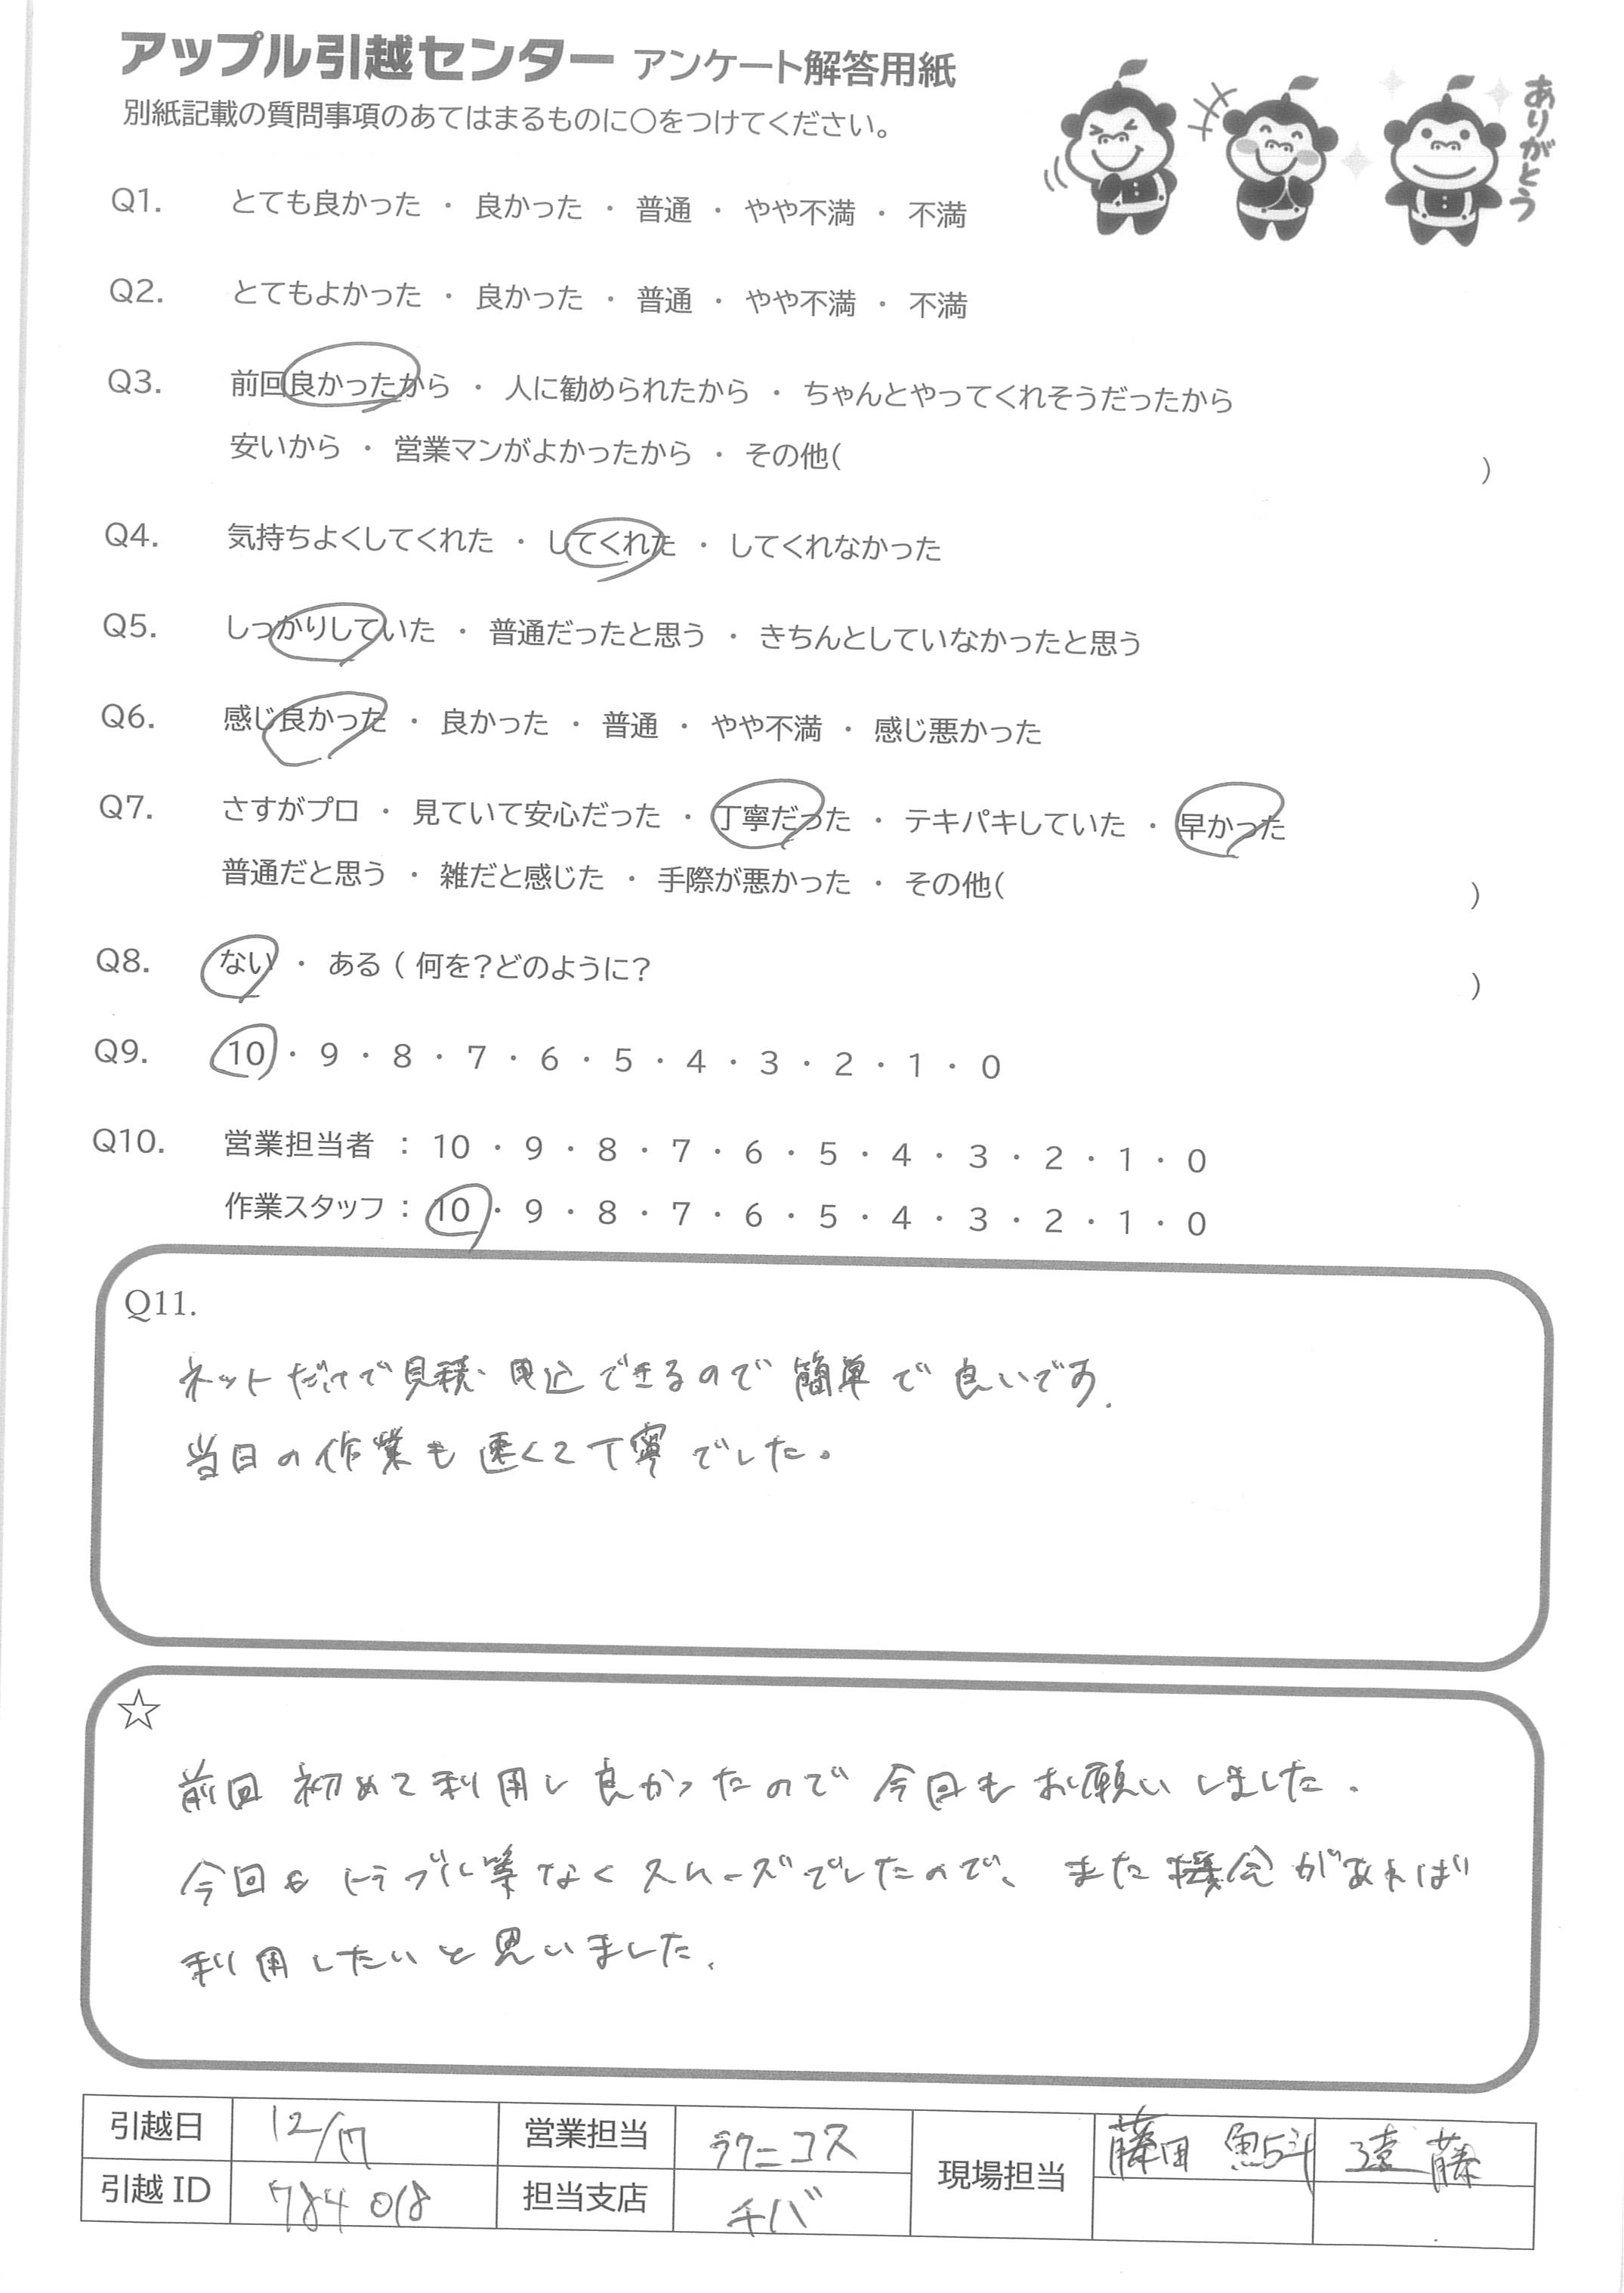 アップル引越センター アンケート解答用紙
別紙記載の質問事項のあてはまるものに○をつけてください。
ありがとう
Q1. とても良かった ・ 良かった ・ 普通 ・ やや不満 ・ 不満
Q2. とてもよかった ・ 良かった ・ 普通 ・ やや不満 ・ 不満
Q3. 前回良かったから ・ 人に勧められたから ・ ちゃんとやってくれそうだったから
安いから ・ 営業マンがよかったから ・ その他( )
Q4. 気持ちよくしてくれた ・ してくれた ・ してくれなかった
Q5. しっかりしていた ・ 普通だったと思う ・ きちんとしていなかったと思う
Q6. 感じ良かった ・ 良かった ・ 普通 ・ やや不満 ・ 感じ悪かった
Q7. さすがプロ ・ 見ていて安心だった ・ 丁寧だった ・ テキパキしていた ・ 早かった
普通だと思う ・ 雑だと感じた ・ 手際が悪かった ・ その他( )
Q8. ない ・ ある ( 何を？どのように？ )
Q9. 10 ・ 9 ・ 8 ・ 7 ・ 6 ・ 5 ・ 4 ・ 3 ・ 2 ・ 1 ・ 0
Q10. 営業担当者 ： 10 ・ 9 ・ 8 ・ 7 ・ 6 ・ 5 ・ 4 ・ 3 ・ 2 ・ 1 ・ 0
作業スタッフ ： 10 ・ 9 ・ 8 ・ 7 ・ 6 ・ 5 ・ 4 ・ 3 ・ 2 ・ 1 ・ 0
Q11.
ネットだけで見積・申込できるので簡単で良いです.
当日の作業も速くて丁寧でした。
☆
前回初めて利用し良かったので今回もお願いしました.
今回もトラブル等なくスムーズでしたので、また機会があれば
利用したいと思いました.
引越日 12/17 営業担当 ラクニコス 現場担当 藤田 遠藤
引越 ID 784018 担当支店 チバ